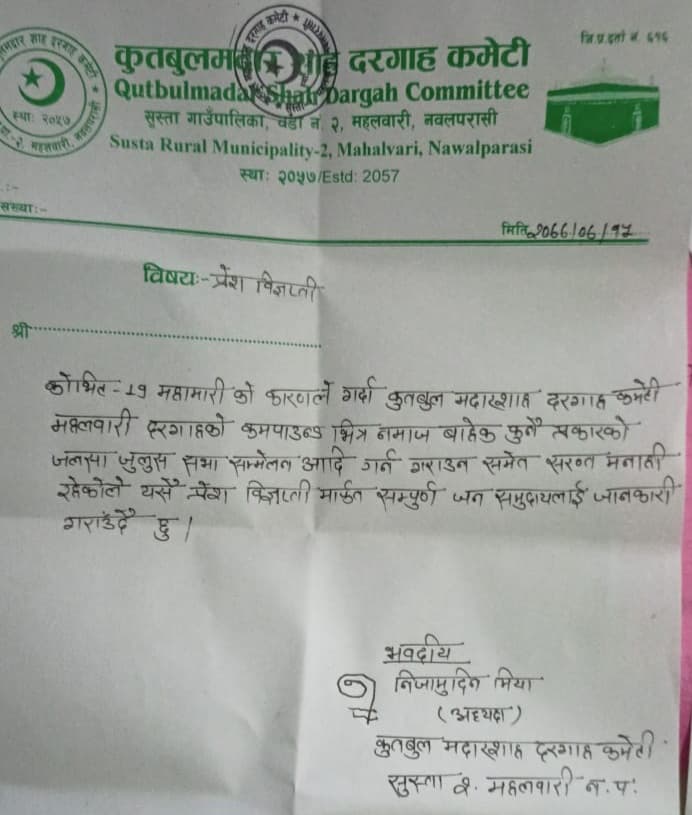 जि.प्र.द्तो नं. ६१६
कुतबुलमदार शाह दरगाह कमेटी
Qutbulmadar Shah Dargah Committee
सुस्ता गाउँपालिका, वडा नं. २, महलवारी, नवलपरासी
Susta Rural Municipality-2, Mahalvari, Nawalparasi
स्था: २०५७/Estd: 2057
स्था: २०५७
संख्या:-
मिति २०७७/०६/१५
विषय:- प्रेश विज्ञप्ती
श्री
कोभिट-19 महामारी को कारणले गर्दा कुतबुल मदारशाह दरगाह कमेटी
महलवारी दरगाहको कमपाउन्ड भित्र नमाज बाहेक कुनै प्रकारको
जलसा जुलुस सभा सम्मेलन आदि गर्न गराउन समेत सख्त मनाही
रहेकोले यसै प्रेश विज्ञप्ती मार्फत सम्पुर्ण जन समुदायलाई जानकारी
गराउँदै छु ।
भवदीय
निजामुदिन मिया
(अध्यक्ष)
कुतबुल मदारशाह दरगाह कमेटी
सुस्ता २. महलवारी न.प.